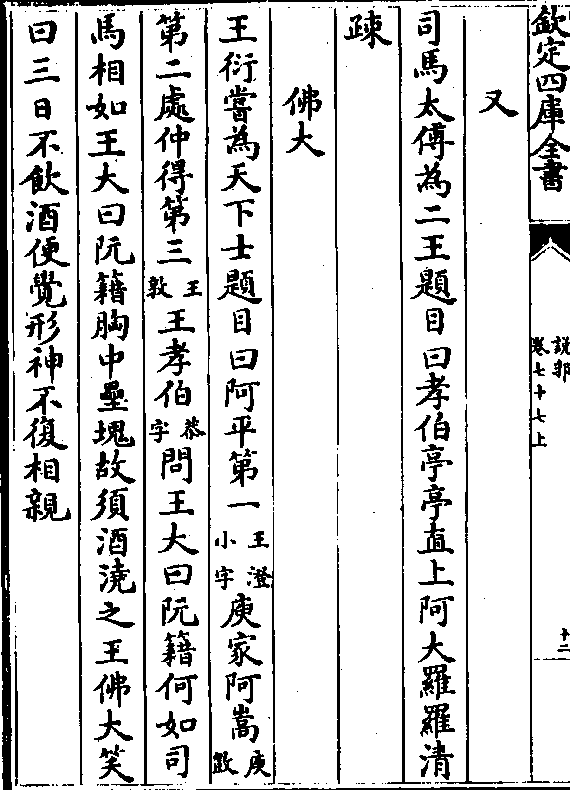 欽定四庫全書
說郛
卷七十七上
十二
又
司馬太傅為二王題目曰孝伯亭亭直上阿大羅羅清
疎
佛大
王衍嘗為天下士題目曰阿平第一王澄小字庾家阿嵩庾敳
第二處仲得第三王敦王孝伯恭字問王大曰阮籍何如司
馬相如王大曰阮籍胸中壘塊故須酒澆之王佛大笑
曰三日不飲酒便覺形神不復相親